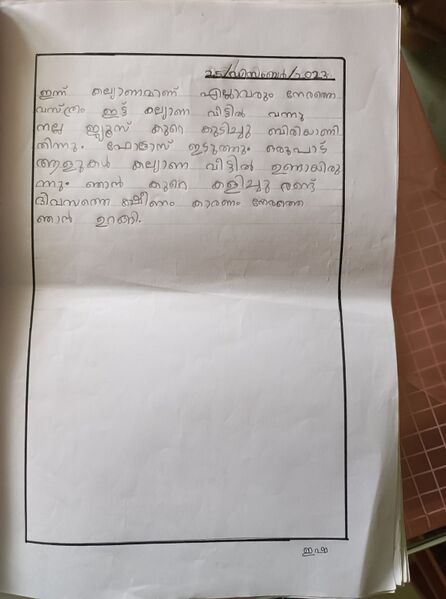 25/ഡിസംബർ/2023
ഇന്ന് കല്യാണമാണ് എല്ലാവരും നേരത്തെ
വസ്ത്രം ഇട്ട് കല്യാണ വീട്ടിൽ വന്നു
നല്ല ജ്യൂസ് കുറെ കുടിച്ചു ബിരിയാണി
തിന്നു. ഫോട്ടോസ് ഇടുത്തും ഒരുപാട്
ആളുകൾ കല്യാണ വീട്ടിൽ ഉണ്ടായിരു
ന്നു. ഞാൻ കുറെ കളിച്ചു രണ്ട്
ദിവസത്തെ ക്ഷീണം കാരണം നേരത്തെ
ഞാൻ ഉറങ്ങി.
ഇഷ